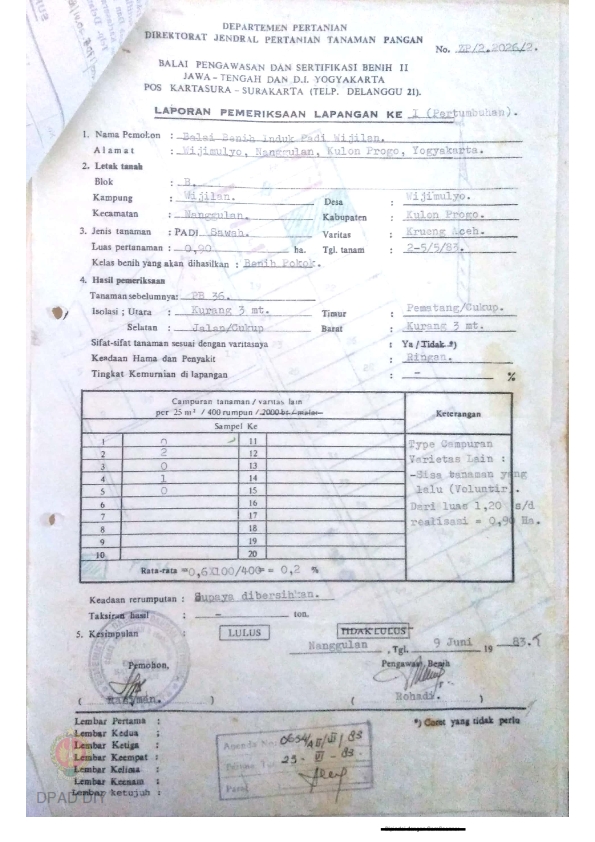 DEPARTEMEN PERTANIAN
DIREKTORAT JENDRAL PERTANIAN TANAMAN PANGAN
No. ZP/2.2026/2.
BALAI PENGAWASAN DAN SERTIFIKASI BENIH II
JAWA-TENGAH DAN D.I. YOGYAKARTA
POS KARTASURA - SURAKARTA (TELP. DELANGGU 21).
LAPORAN PEMERIKSAAN LAPANGAN KE I (Pertumbuhan).
1. Nama Pemohon : Balai Benih Induk Padi Wijilan.
Alamat : Wijimulyo, Nanggulan, Kulon Progo, Yogyakarta.
2. Letak tanah
Blok : B.
Kampung : Wijilan. Desa : Wijimulyo.
Kecamatan : Nanggulan. Kabupaten : Kulon Progo.
3. Jenis tanaman : PADI Sawah. Varitas : Krueng Aceh.
Luas pertanaman : 0,90 ha. Tgl. tanam : 2-5/5/83.
Kelas benih yang akan dihasilkan : Benih Pokok.
4. Hasil pemeriksaan
Tanaman sebelumnya: PB 36.
Isolasi ; Utara : Kurang 3 mt. Timur : Pematang/Cukup.
Selatan : Jalan/Cukup Barat : Kurang 3 mt.
Sifat-sifat tanaman sesuai dengan varitasnya : Ya / Tidak *)
Keadaan Hama dan Penyakit : Ringan.
Tingkat Kemurnian di lapangan : - %
Campuran tanaman / varitas lain
per 25 m² / 400 rumpun / 2000 bt. / malai
Keterangan
Sampel Ke
1 0 11
2 2 12
3 0 13
4 1 14
5 0 15
6 16
7 17
8 18
9 19
10 20
Type Campuran
Varietas Lain :
-Sisa tanaman yang
lalu (Voluntir).
Dari luas 1,20 s/d
realisasi = 0,90 Ha.
Rata-rata = 0,6X100/400= = 0,2 %
Keadaan rerumputan : Supaya dibersihkan.
Taksiran hasil : - ton.
5. Kesimpulan : LULUS TIDAK LULUS
Nanggulan, Tgl. 9 Juni 19 83.
Pemohon, Pengawas Benih
( ) ( Rohadi. )
Lembar Pertama :
*) Coret yang tidak perlu
Lembar Kedua :
Lembar Ketiga :
Lembar Keempat :
Lembar Kelima :
Lembar Keenam :
Lembar ketujuh :
Agenda No:
Paraf
DPAD DIY